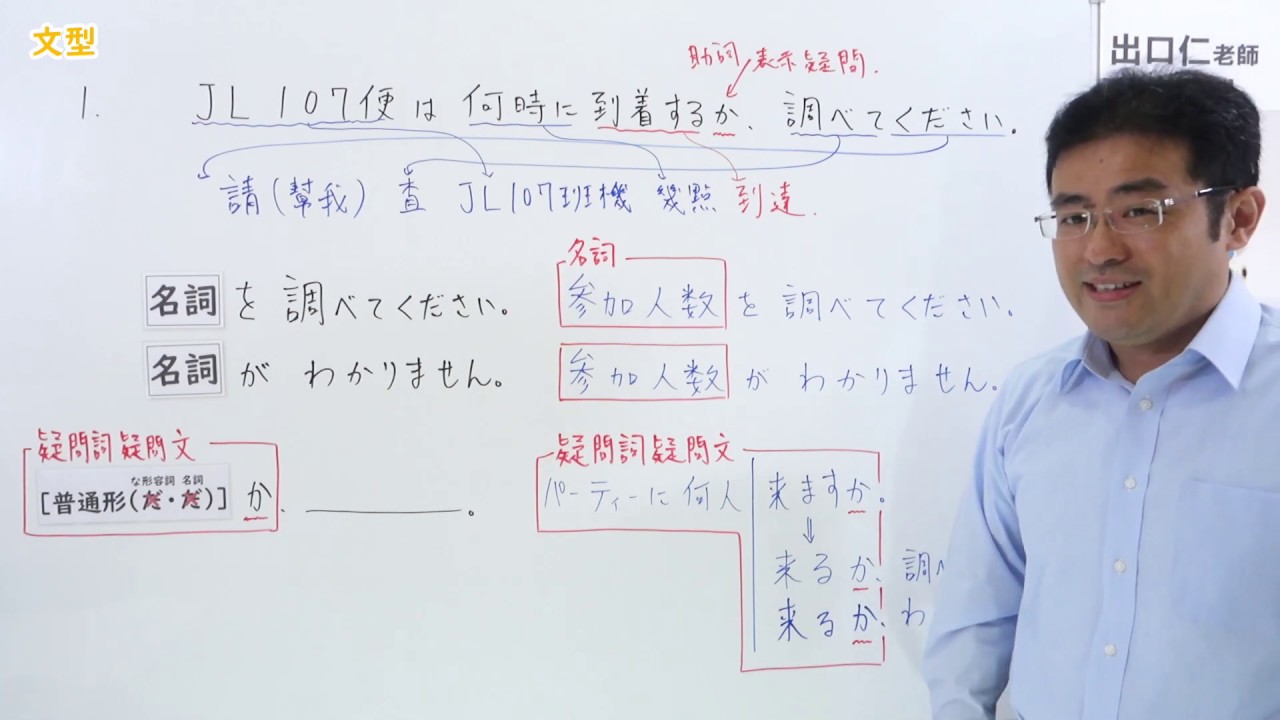 文型
出口仁老師
助詞 表示疑問.
1. JL107便は 何時に 到着するか、調べてください。
請(幫我) 查 JL107班機 幾點 到達.
名詞を 調べてください。
名詞が わかりません。
名詞
参加人数を 調べてください。
参加人数が わかりません。
疑問詞疑問文
な形容詞 名詞
[普通形(だ・だ)]か、______。
疑問詞疑問文
パーティーに 何人 来ますか。
⇓
来るか、調べ
来るか、わ